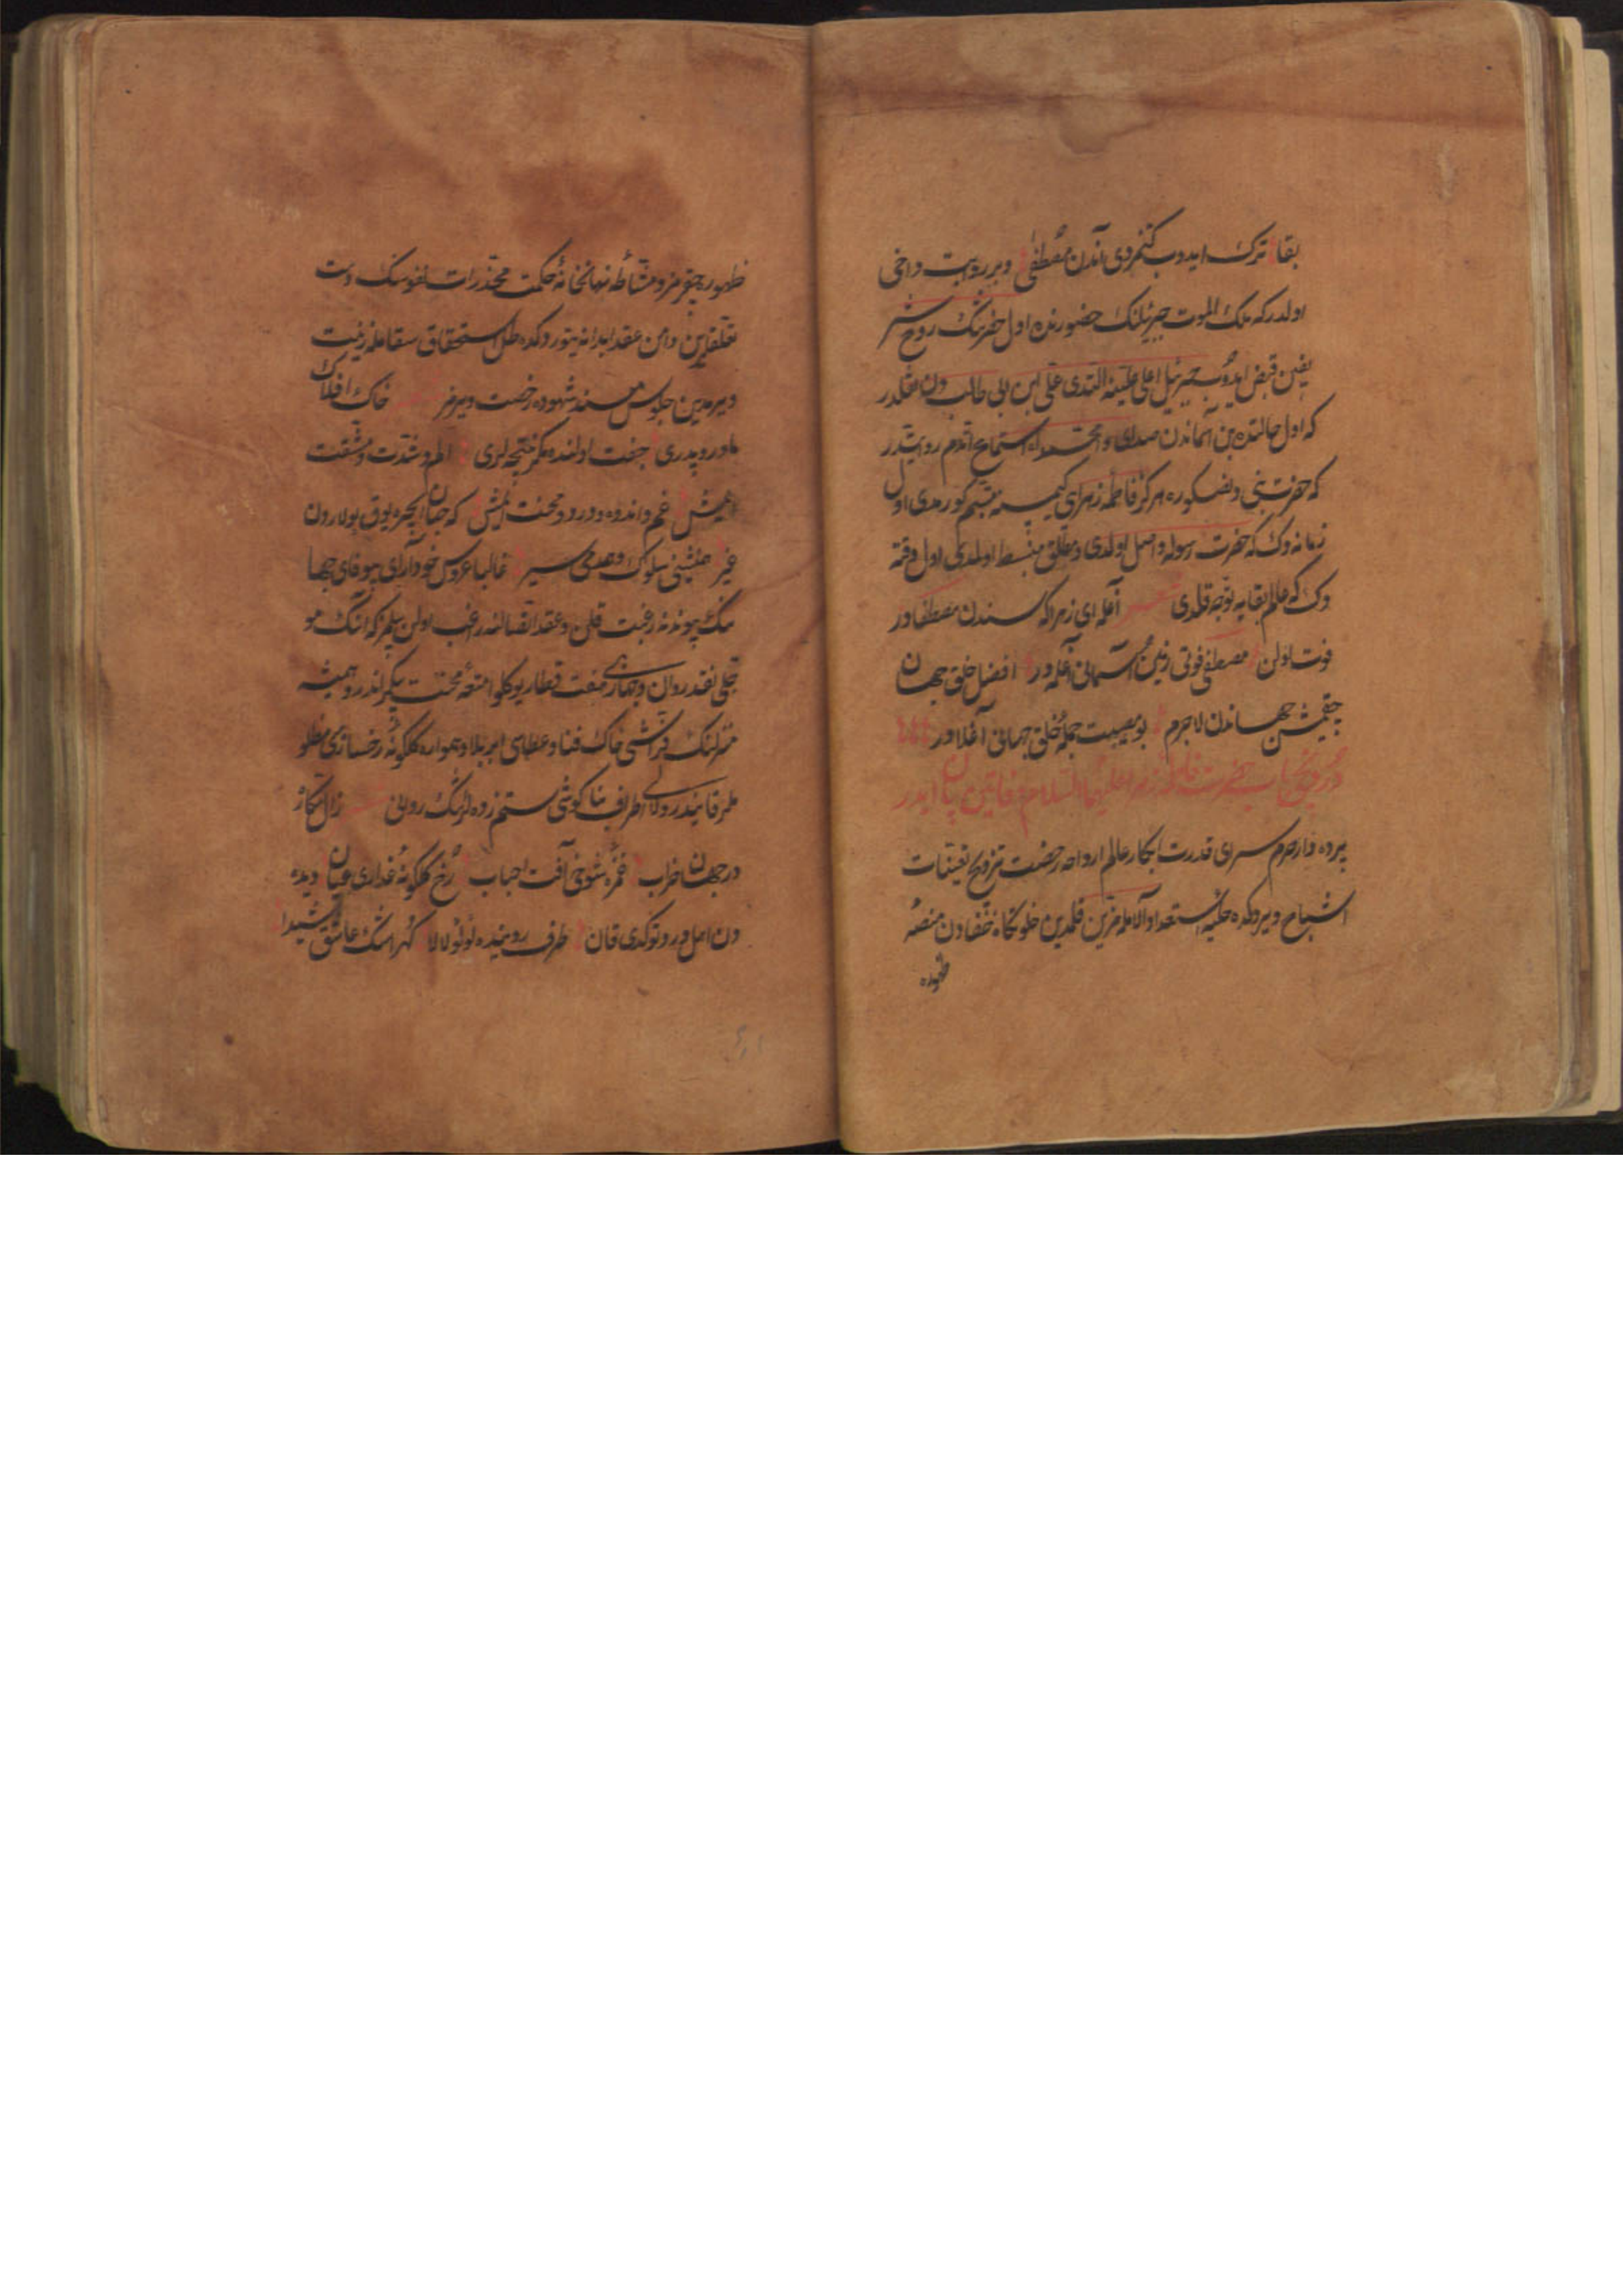 بقا ترک ایدوب کتمزدی آندن مصطفی وبر روایت داخی
اولدر که ملک الموت جبرئیلنک حضورنده اول حضرتنک روح شر
یفین قبض ایدوب جبرئیل اعلی علیینه التدی علی ابن ابی طالب دن نقلدر
که اول حالتده بن آسماندن صدای وامحمداه استماع اتدم روایتدر
که حضرت نبی دن صکره هرکز فاطمه زهرای کیمسه متبسم کورمدی اول
زمانه دک که حضرت رسوله واصل اولدی متبسط اولمدی اول وقته
دک که عالم بقایه توجه قلدی شعر آغلمه ای زهرا که سندن مصطفادر
فوت اولن مصطفی فوتی زمین آسمانی آغلدر افضل خلق جهان
چقمش جهاندن لاجرم بو مصیبت جمله خلق جهانی آغلادر
حضرت فاطمه زهرا علیها السلام وفاتین بیان ایدر
پرده دار حرم سرای قدرت ابکار عالم ارواحه رخصت تزویج تعینات
اشباح ویردکده حلیه استعداد الامله مزین قلمدین خلوتکاه خفادن منصه
ظهوره
ظهوره چقرمز ومشاطه نهانخانه حکمت مخدرات نفوسنک دست
تعلقلرین دامن عقد ابدانه یتوردکده استحقاق بقامله زینت
ویرمدین جلوس مسند شهوده رخصت ویرمز شعر خاک افلاک
مادر وپدری جفت اولنده مکر نتیجه لری الم وشدت ومشقت
ایمش غم واندوه ودرد ومحنت ایمش که جهان ایچره یوق بولاردن
غیر همنشینی سلوک وهمدمی سیر غالبا عروس خودآرای بیوفای جها
ننک پیوندنه رغبت قلن وعقد اتصالنه راغب اولن بیلمز که انک مو
جلی نقد روان
منزلنک فراشی خاک فنا وعطاسی ابر بلا وهمواره کلکونه رخساری مظلو
ملر قانیدر اطراف بناکوشی ستمزده لرنک روانی شعر زال مکار
در جهان خراب غمزه شوخی آفت احباب رخ کلکونه عذاری عیان دیده
دن اهل درد توکدی قان طرف رویینده لؤلؤ لالا کهر اشک عاشق شیدا